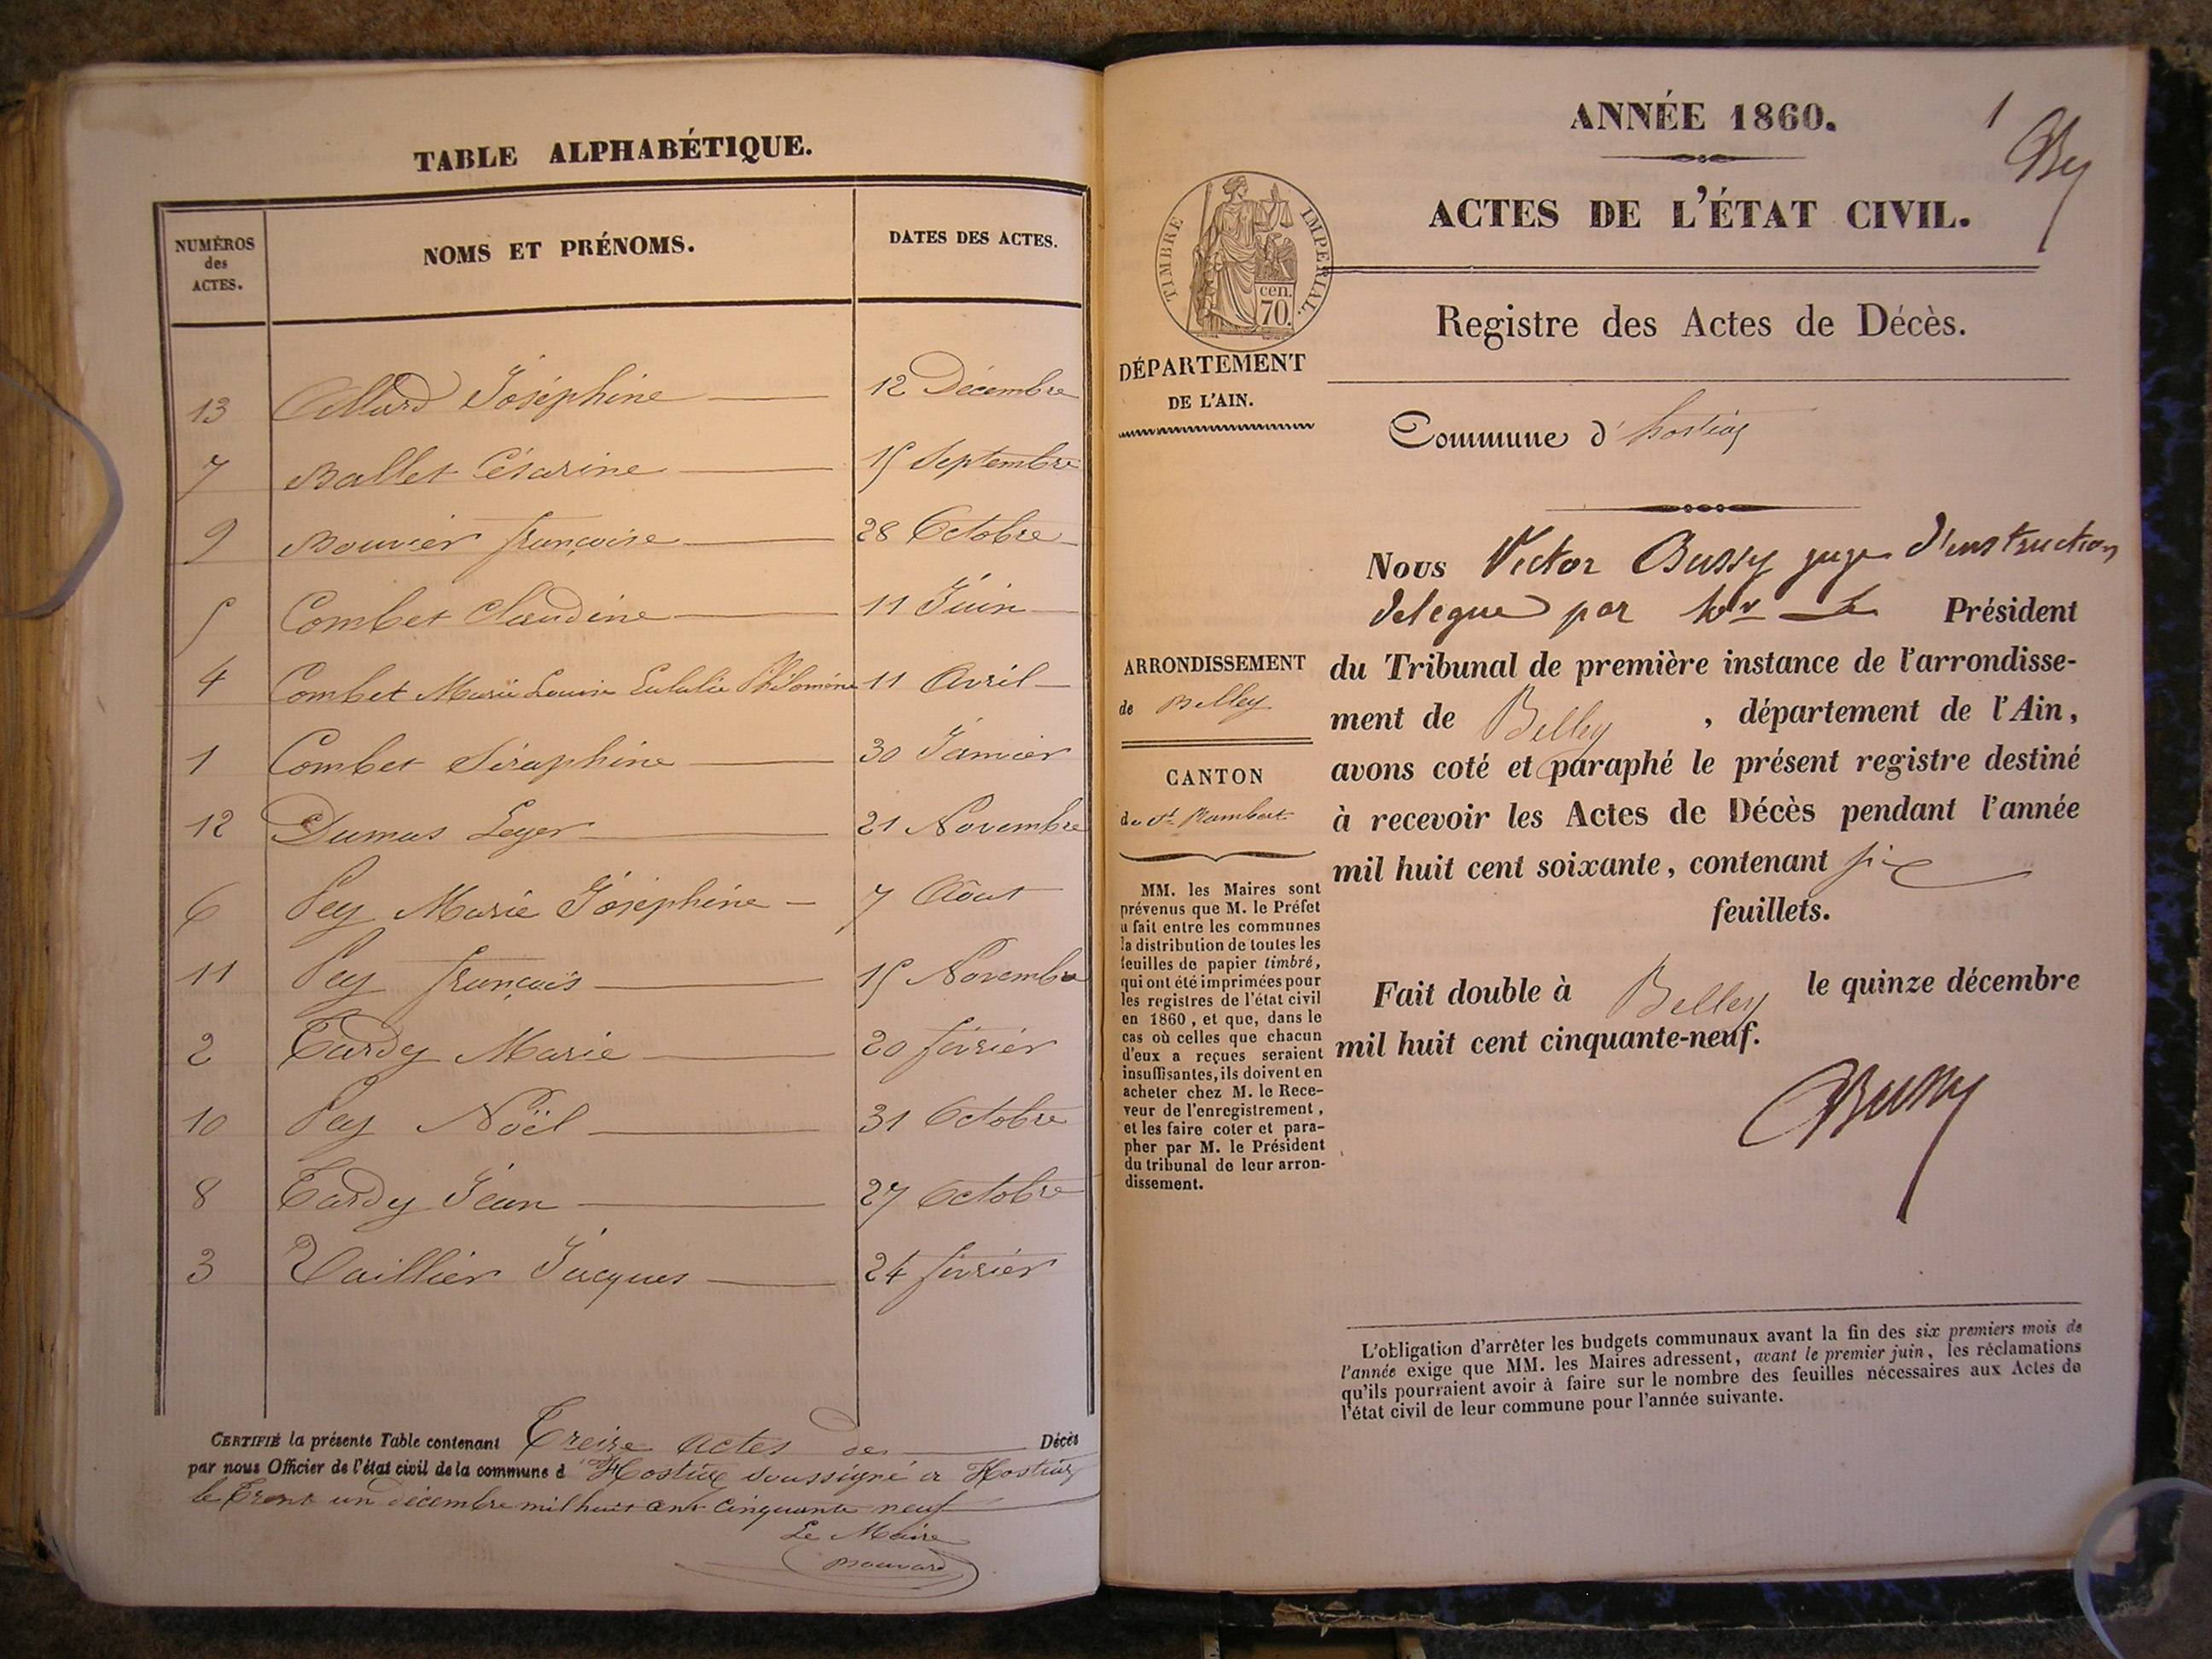 TABLE ALPHABÉTIQUE.
NUMÉROS des ACTES. NOMS ET PRÉNOMS. DATES DES ACTES.
13 Allard Joséphine 12 Décembre
7 Ballet Césarine 15 Septembre
9 Bouvier françoise 28 Octobre
5 Combet Claudine 11 Juin
4 Combet Marie Louise Eulalie Philomène 11 Avril
1 Combet Séraphine 30 Janvier
12 Dumas Leger 21 Novembre
6 Pey Marie Joséphine 7 Août
11 Pey françois 15 Novembre
2 Tardy Marie 20 février
10 Pey Noël 31 Octobre
8 Tardy Jean 27 Octobre
3 Vaillier Jacques 24 février
CERTIFIÉ la présente Table contenant Treize Actes de Décès
par nous Officier de l'état civil de la commune d'Hostiaz soussigné à Hostiaz
le Trent un décembre mil huit cent cinquante neuf
Le Maire
Bouvard
1
By
ANNÉE 1860.
ACTES DE L'ÉTAT CIVIL.
TIMBRE IMPERIAL.
cen.
70.
Registre des Actes de Décès.
DÉPARTEMENT
DE L'AIN.
Commune d'hostiaz
Nous Victor Bussy juge d'instruction
délégué par Mr Le Président
du Tribunal de première instance de l'arrondisse-
ment de Belley, département de l'Ain,
avons coté et paraphé le présent registre destiné
à recevoir les Actes de Décès pendant l'année
mil huit cent soixante, contenant six
feuillets.
Fait double à Belley le quinze décembre
mil huit cent cinquante-neuf.
Bussy
ARRONDISSEMENT
de Belley
CANTON
de St Rambert
MM. les Maires sont
prévenus que M. le Préfet
a fait entre les communes
la distribution de toutes les
feuilles de papier timbré,
qui ont été imprimées pour
les registres de l'état civil
en 1860, et que, dans le
cas où celles que chacun
d'eux a reçues seraient
insuffisantes, ils doivent en
acheter chez M. le Rece-
veur de l'enregistrement,
et les faire coter et para-
pher par M. le Président
du tribunal de leur arron-
dissement.
L'obligation d'arrêter les budgets communaux avant la fin des six premiers mois de
l'année exige que MM. les Maires adressent, avant le premier juin, les réclamations
qu'ils pourraient avoir à faire sur le nombre des feuilles nécessaires aux Actes de
l'état civil de leur commune pour l'année suivante.